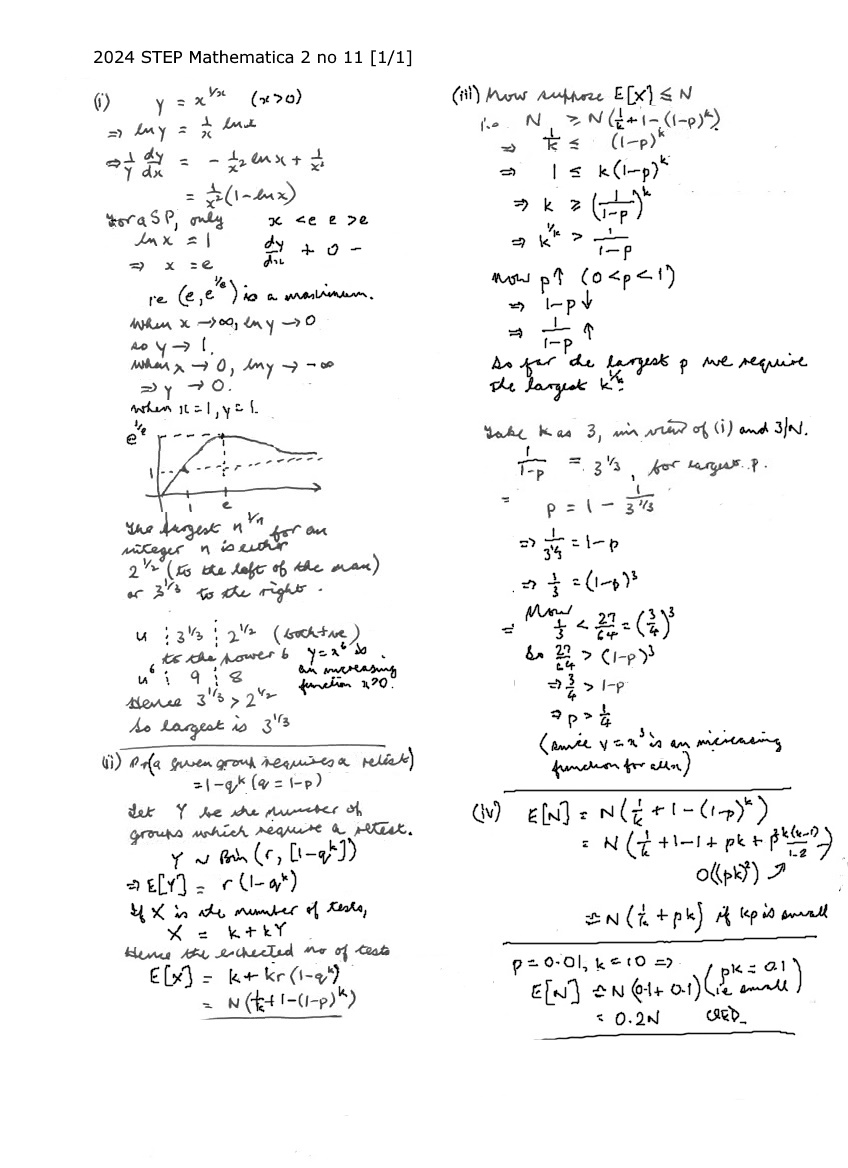 2024 STEP Mathematica 2 no 11 [1/1]
(i) y = x^{1/x} (x>0)
⇒ ln y = 1/x ln x
⇒ 1/y dy/dx = - 1/x² ln x + 1/x²
= 1/x² (1 - ln x)
For a SP, only x <e e >e
ln x = 1 dy/dx + 0 -
⇒ x = e
ie (e, e^{1/e}) is a maximum.
when x → ∞, ln y → 0
so y → 1.
when x → 0, ln y → -∞
⇒ y → 0.
when x = 1, y = 1.
e^{1/e}
1
1 e
The largest n^{1/n} for an
integer n is either
2^{1/2} (to the left of the max)
or 3^{1/3} to the right.
u 3^{1/3} 2^{1/2} (both +ve)
to the power 6 y = x^6 is
u^6 9 8 an increasing
function x>0.
Hence 3^{1/3} > 2^{1/2}
So largest is 3^{1/3}
(ii) Pr(a given group requires a retest)
= 1 - q^k (q = 1-p)
Let Y be the number of
groups which require a retest.
Y ~ Bin (r, [1-q^k])
⇒ E[Y] = r(1-q^k)
If X is the number of tests,
X = k + kY
Hence the expected no of tests
E[X] = k + kr(1-q^k)
= N(1/k + 1 - (1-p)^k)
(iii) Now suppose E[X] ≤ N
i.e. N ≥ N(1/k + 1 - (1-p)^k)
⇒ 1/k ≤ (1-p)^k
⇒ 1 ≤ k(1-p)^k
⇒ k ≥ (1/(1-p))^k
⇒ k^{1/k} > 1/(1-p)
Now p↑ (0<p<1)
⇒ 1-p↓
⇒ 1/(1-p) ↑
So for the largest p we require
the largest k^{1/k}.
Take k as 3, in view of (i) and 3|N.
1/(1-p) = 3^{1/3}, for largest p.
= p = 1 - 1/3^{1/3}
⇒ 1/3^{1/3} = 1-p
⇒ 1/3 = (1-p)^3
Now
= 1/3 < 27/64 = (3/4)^3
So 27/64 > (1-p)^3
⇒ 3/4 > 1-p
⇒ p > 1/4
(since y = x^3 is an increasing
function for all x)
(iv) E[N] = N(1/k + 1 - (1-p)^k)
= N(1/k + 1 - 1 + pk + p² k(k-1)/1·2 )
O((pk)²)
≏ N(1/k + pk) if kp is small
p = 0.01, k = 10 ⇒ (pk = 0.1
E[N] ≏ N(0.1 + 0.1) ie small)
= 0.2N QED